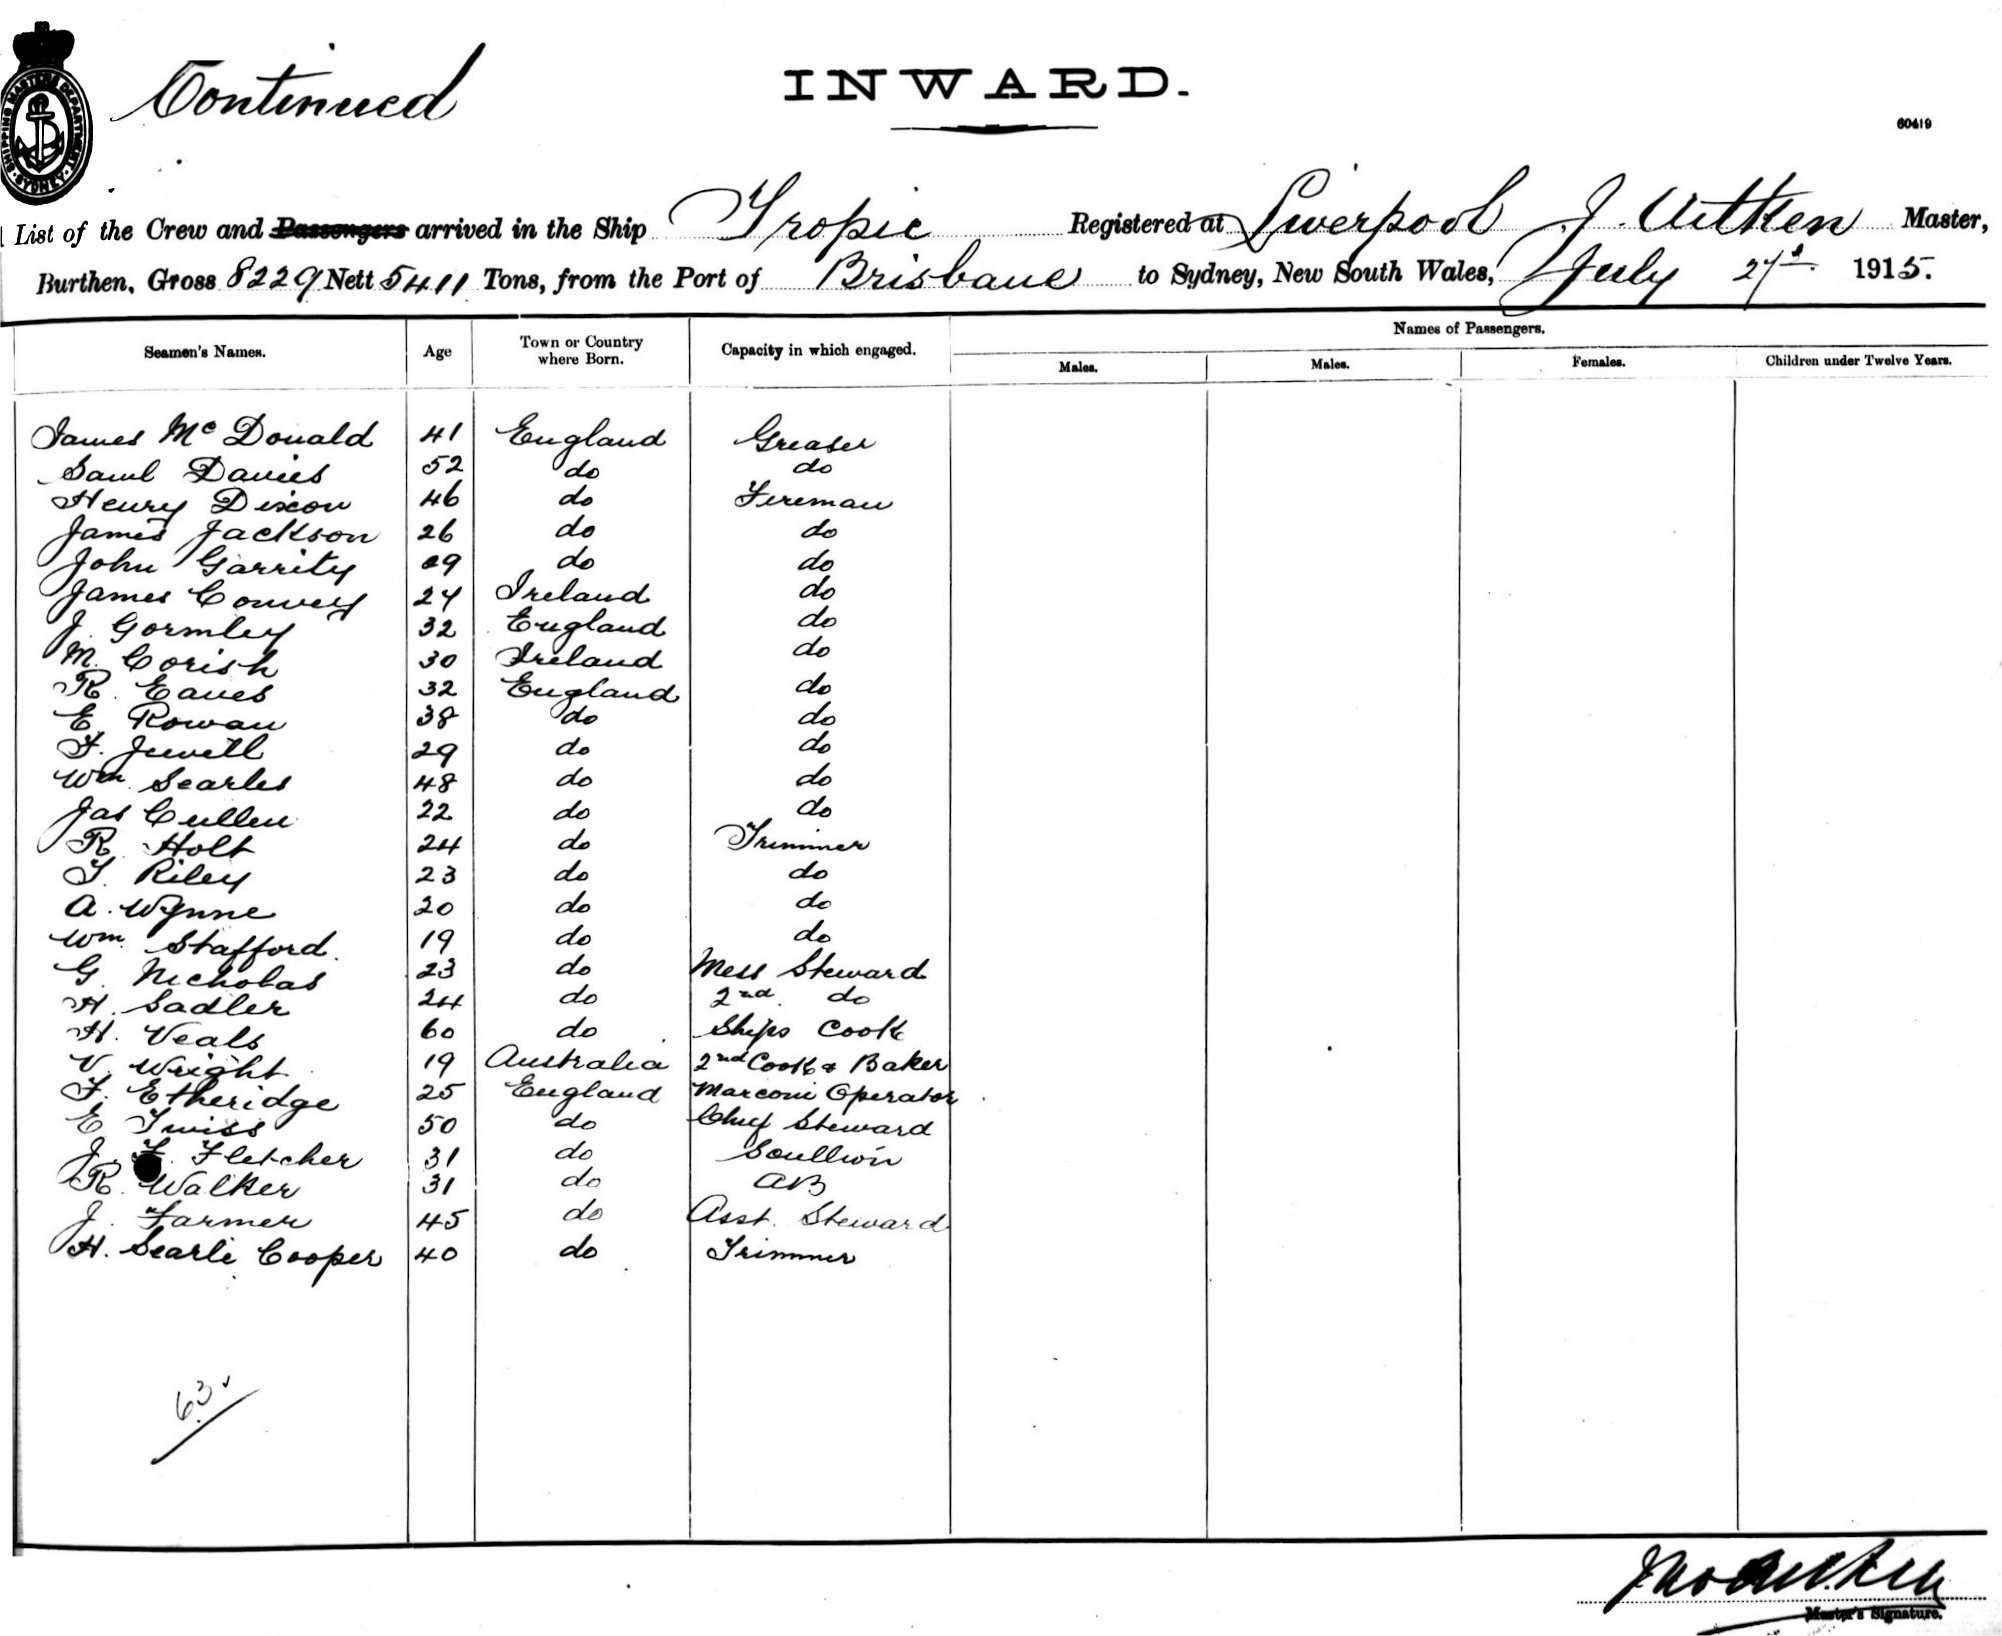 Continued
INWARD.
60419
SHIPPING MASTERS DEPARTMENT SYDNEY
List of the Crew and Passengers arrived in the Ship Tropic Registered at Liverpool J. Aitken Master,
Burthen, Gross 8229 Nett 5411 Tons, from the Port of Brisbane to Sydney, New South Wales, July 27th 1915.
Seamen's Names. Age Town or Country where Born. Capacity in which engaged. Names of Passengers.
Males. Males. Females. Children under Twelve Years.
James McDonald 41 England Greaser
Saml Davies 52 do do
Henry Dixon 46 do Fireman
James Jackson 26 do do
John Garrity 29 do do
James Convey 24 Ireland do
J. Gormley 32 England do
M. Corish 30 Ireland do
R. Eaves 32 England do
E. Rowan 38 do do
F. Jewell 29 do do
Wm Searles 48 do do
Jas Cullen 22 do do
R. Holt 24 do Trimmer
T. Riley 23 do do
A. Wynne 20 do do
Wm. Stafford. 19 do do
G. Nicholas 23 do Mess Steward
H. Sadler 24 do 2nd do
H. Veals 60 do Ships Cook
V. Wright 19 Australia 2nd Cook & Baker
F. Etheridge 25 England Marconi Operator
E Twiss 50 do Chief Steward
J. F. Fletcher 31 do Scullion
R. Walker 31 do AB
J. Farmer 45 do Asst. Steward
H. Searle Cooper 40 do Trimmer
63
Master's Signature.